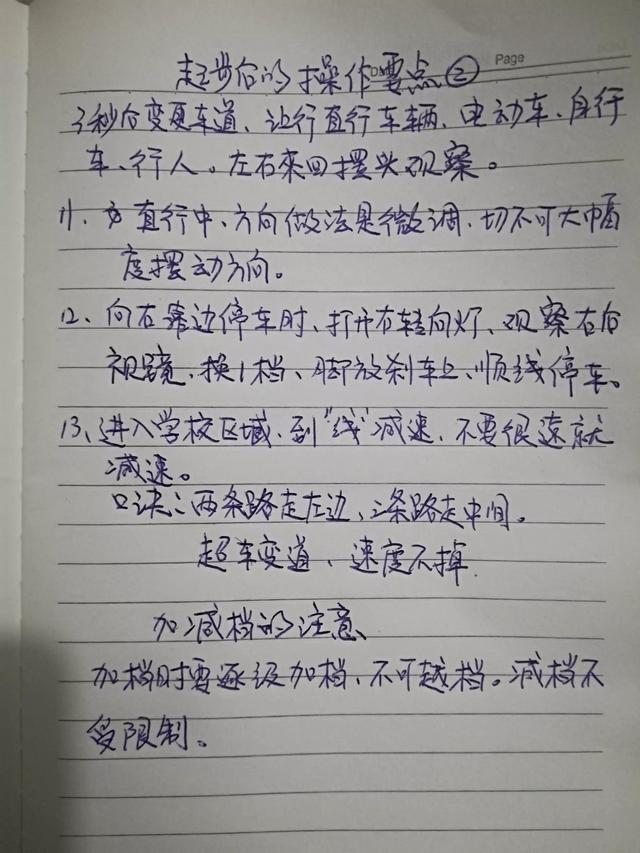 Page
起步后的操作要点②
3秒后变更车道、让行直行车辆、电动车、自行
车、行人。左右来回摆头观察。
11、在直行中、方向做法是微调、切不可大幅
度摆动方向。
12、向右靠边停车时、打开右转向灯、观察右后
视镜、换1档、脚放刹车上、顺线停车。
13、进入学校区域、到“线”减速、不要很远就
减速。
口诀:两条路走左边、三条路走中间。
超车变道、速度不掉.
加减档的注意、
加档时要逐级加档、不可越档。减档不
受限制。